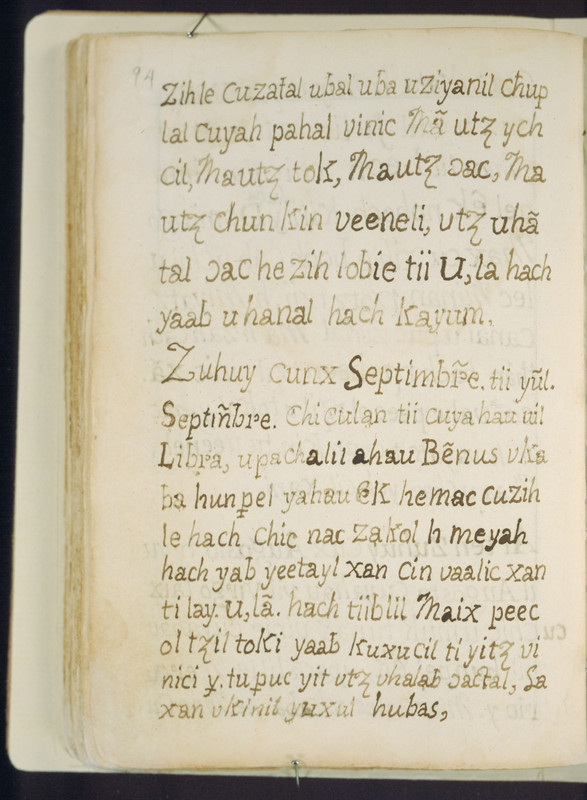 94
Zihle Cuzatal ubal uba uziyanil chup
lal cuyah pahal vinic Mã utz ych
cil, Mautz tok, Mautz ɔac, Ma
utz chun kin veeneli, vtz uhã
tal ɔac he zih lobie tii U, la hach
yaab u hanal hach kayum,
Zuhuy cunx Septimbr̃e. tii yũl.
Septim̃bre. Chi culan tii cuya hau vil
Libra, u pachalil ahau Bẽnus vka
ba hun pel yahau EK he mac cuzih
le hach chic nac zakol h meyah
hach yab yeetayl xan cin vaalic xan
ti lay. U, lã. hach tiiblil Maix peec
ol tzil toki yaab kuxucil ti yitz vi
nici y. tu puc yit vtz vhalab ɔactal, La
xan vkinil yuxul hubas,